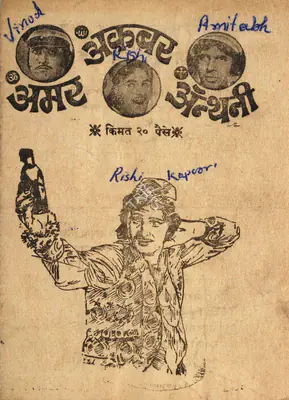 Vinod Amitabh
ॐ अमर अकबर अ‍ॅन्थनी
Rishi
※ किंमत २० पैसे ※
Rishi Kapoor